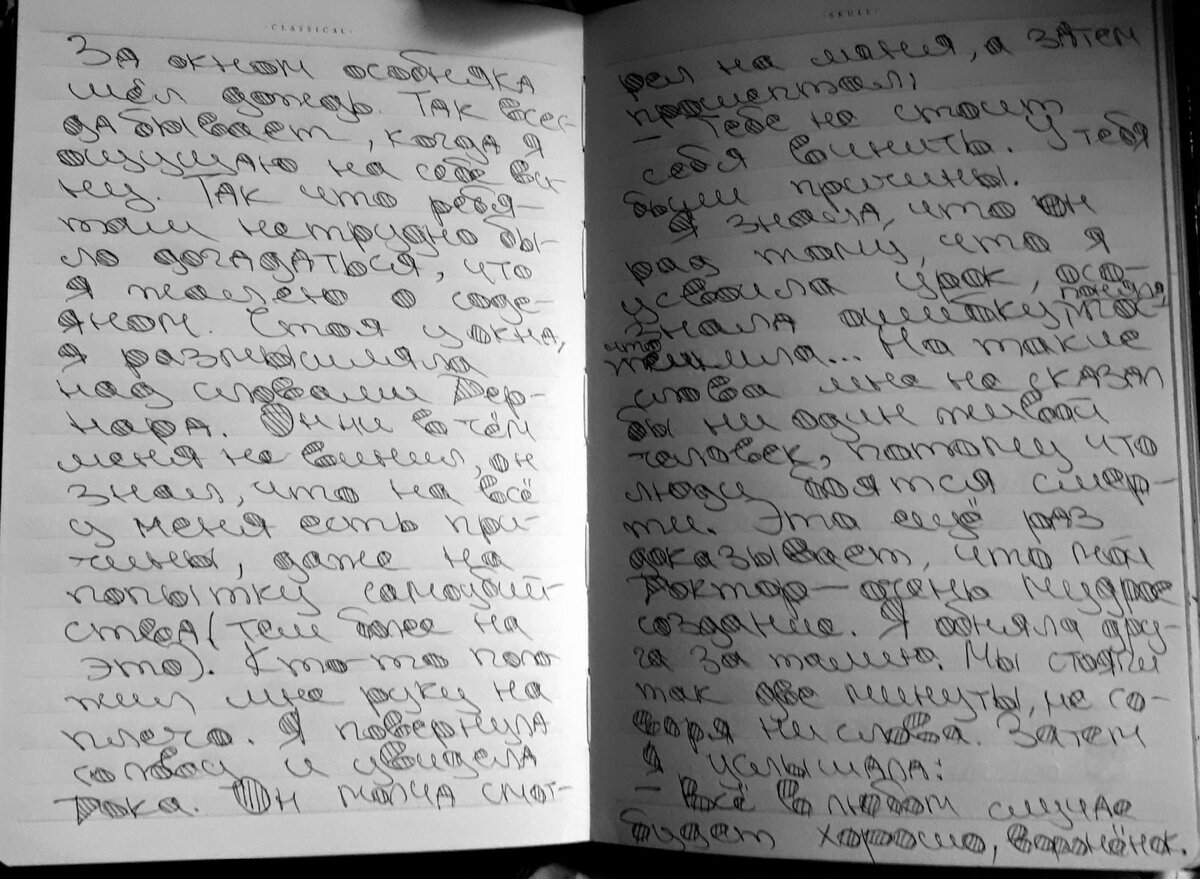 ·CLASSICAL·
За окном особняка
шёл дождь. Так всег-
да бывает, когда я
ощущаю на себе ви-
ну. Так что ребя-
там нетрудно бы-
ло догадаться, что
я жалею о соде-
яном. Стоя у окна,
я размышляла
над словами Бер-
нара. Он ни в чём
меня не винил, он
знал, что на всё
у меня есть при-
чины, даже на
попытку самоубий-
ства (тем более на
это). Кто-то поло
жил мне руку на
плечо. Я повернула
голову и увидела
Дока. Он молча смот-
·SKULL·
рел на меня, а затем
прошептал:
- Тебе не стоит
себя винить. У тебя
были причины.
Я знала, что он
рад тому, что я
усвоила урок, осо-
знала ошибку, поняла,
что
На такие
слова мне не сказал
бы ни один живой
человек, потому что
люди боятся смер-
ти. Это ещё раз
доказывает, что мой
Доктор - очень мудрое
создание. Я обняла дру-
га за талию. Мы стояли
так две минуты, не го-
воря ни слова. Затем
я услышала:
- Всё в любом случае
будет хорошо, воронёнок.